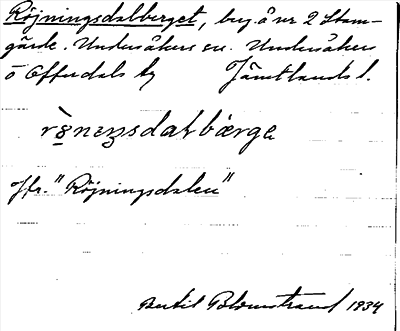 Röjningsdalberget, beg. å nr 2 Stam-
gärde. Undersåkers sn. Undersåkers
o Offerdals tg Jämtlands l.
rö̀neŋsdaɫbærgɛ
Jfr. "Röjningsdalen"
Bertil Blomstrand 1934